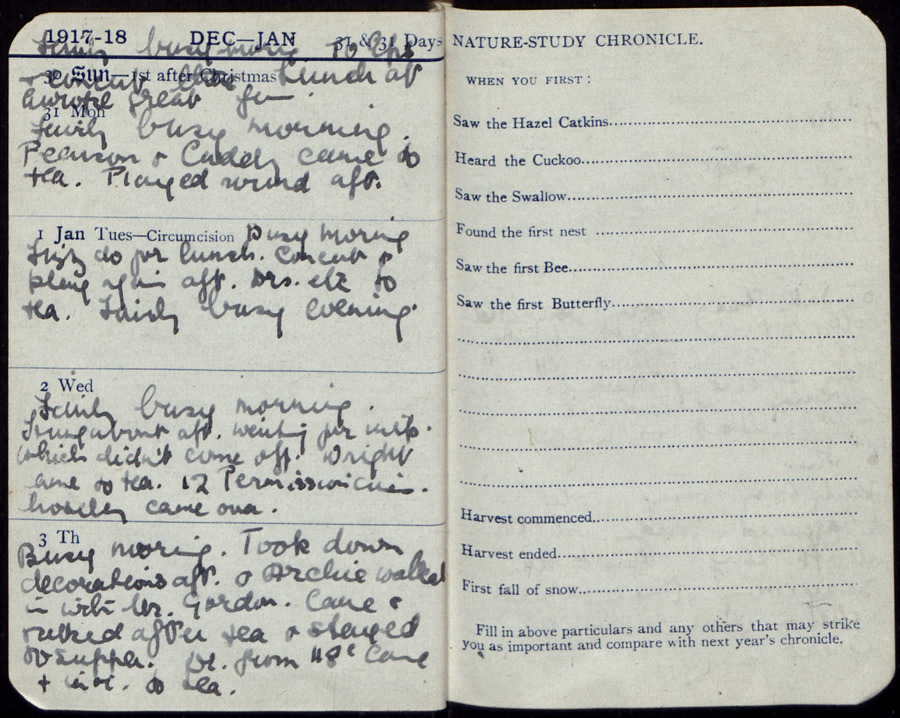 1917-18 DEC—JAN 31 & 31 Days
Fairly busy
30 Sun—1st after Christmas Lunch at
great
31 Mon
Fairly busy morning.
Pearson & came to
tea. Played round aft.
1 Jan Tues—Circumcision Busy morning
do for lunch. Concert &
aft. Drs. etc to
tea. Fairly busy evening.
2 Wed
Fairly busy morning.
Hung about aft. waiting for
which didn't come off. Wright
came to tea. 12
came over.
3 Th
Busy morning. Took down
decorations aft. & Archie walked
in with Mr. Gordon. Came &
talked after tea & stayed
to supper. from 118 came
to tea.
NATURE-STUDY CHRONICLE.
WHEN YOU FIRST:
Saw the Hazel Catkins
Heard the Cuckoo
Saw the Swallow
Found the first nest
Saw the first Bee
Saw the first Butterfly
Harvest commenced
Harvest ended
First fall of snow
Fill in above particulars and any others that may strike
you as important and compare with next year's chronicle.